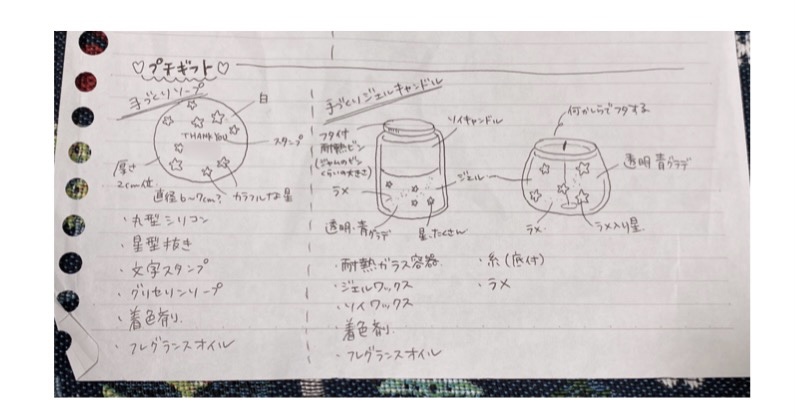 ♡プチギフト♡
手づくりソープ
白
THANK YOU
スタンプ
厚さ
2cm位
直径6〜7cm?
カラフルな星
・丸型シリコン
・星型抜き
・文字スタンプ
・グリセリンソープ
・着色剤
・フレグランスオイル
手づくりジェルキャンドル
フタ付
耐熱ビン
(ジャムのビン
くらいの大きさ)
ソイキャンドル
ラメ
ジェル
透明・青グラデ
星たくさん
何かしらでフタする
透明青グラデ
ラメ
ラメ入り星
・耐熱ガラス容器
・ジェルワックス
・ソイワックス
・着色剤
・フレグランスオイル
・糸(底付)
・ラメ